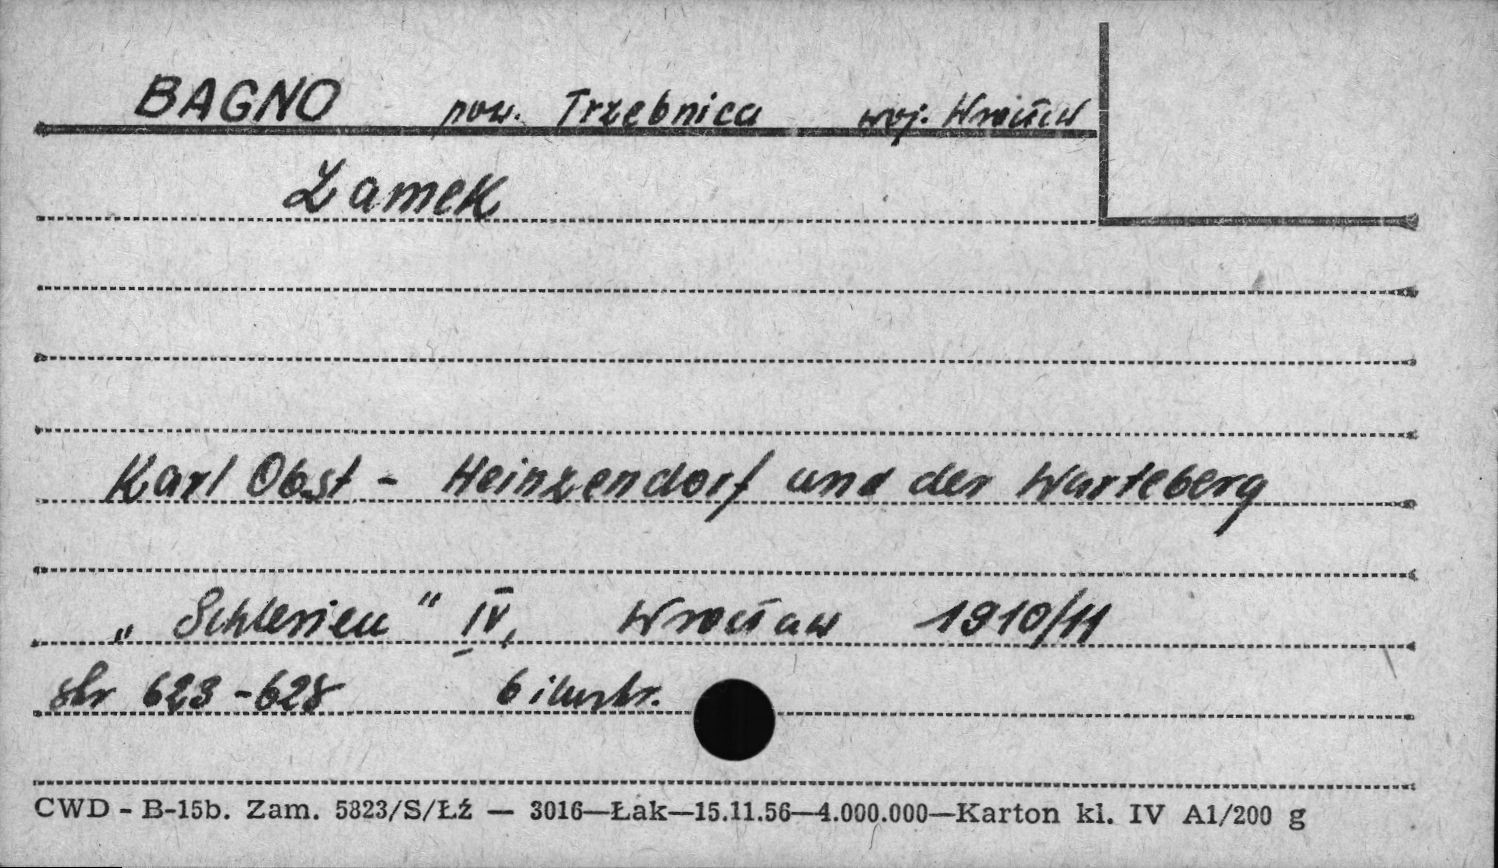 BAGNO pow. Trzebnica woj. Wrocław
Zamek
Karl Obst - Heinzendorf und der Warteberg
„Schlesien" IV, Wrocław 1910/11
str 623-628 6 ilustr.
CWD - B-15b. Zam. 5823/S/Łź — 3016—Łak—15.11.56—4.000.000—Karton kl. IV A1/200 g